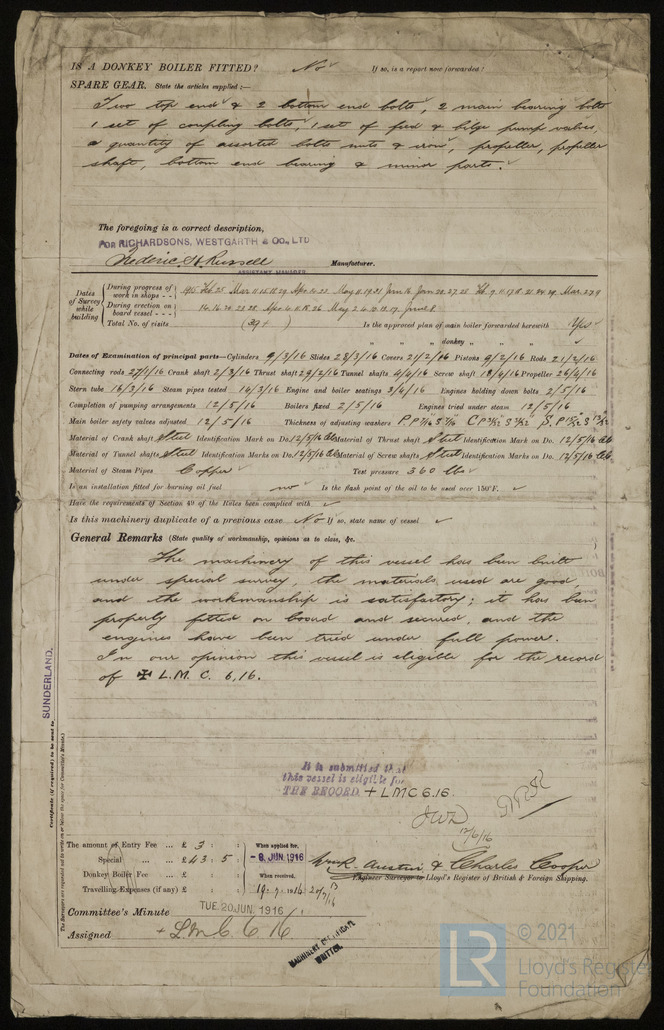 IS A DONKEY BOILER FITTED? No If so, is a report now forwarded?
SPARE GEAR. State the articles supplied:—
Two top end & 2 bottom end bolts, 2 main bearing bolts
1 set of coupling bolts, 1 set of feed & bilge pump valves,
a quantity of assorted bolts nuts & iron, propeller, propeller
shaft, bottom end bearing & minor parts.
The foregoing is a correct description,
FOR RICHARDSONS, WESTGARTH & CO., LTD
Frederic H Russell Manufacturer.
ASSISTANT MANAGER
Dates of Survey while building
During progress of work in shops - - 1915 Feb 25 Mar 11.15.18.29 Apr 14.22 May 11.19.21
During erection on board vessel - - - 14.16.24.23.28 Apr 4.11.18.26 May 2.4.10.12.17 June 8
Total No. of visits (39+ ) Is the approved plan of main boiler forwarded herewith Yes
" " " donkey " "
Dates of Examination of principal parts—Cylinders 9/3/16 Slides 28/3/16 Covers 21/2/16 Pistons 9/2/16 Rods 21/2/16
Connecting rods 27/1/16 Crank shaft 2/3/16 Thrust shaft 29/2/16 Tunnel shafts 4/4/16 Screw shaft 18/4/16 Propeller 26/4/16
Stern tube 16/3/16 Steam pipes tested 14/3/16 Engine and boiler seatings 3/4/16 Engines holding down bolts 2/5/16
Completion of pumping arrangements 12/5/16 Boilers fixed 2/5/16 Engines tried under steam 12/5/16
Main boiler safety valves adjusted 12/5/16 Thickness of adjusting washers
Material of Crank shaft Steel Identification Mark on Do. 12/5/16 Material of Thrust shaft Steel Identification Mark on Do. 12/5/16
Material of Tunnel shafts Steel Identification Marks on Do. 12/5/16 Material of Screw shafts Steel Identification Marks on Do. 12/5/16
Material of Steam Pipes Copper Test pressure 360 lbs
Is an installation fitted for burning oil fuel no Is the flash point of the oil to be used over 150°F.
Have the requirements of Section 49 of the Rules been complied with
Is this machinery duplicate of a previous case No If so, state name of vessel
General Remarks (State quality of workmanship, opinions as to class, &c.
The machinery of this vessel has been built
under special survey, the materials used are good,
and the workmanship is satisfactory; it has been
properly fitted on board and secured, and the
engines have been tried under full power.
In our opinion this vessel is eligible for the record
of ✠ L.M.C. 6,16.
SUNDERLAND.
Certificate (if required) to be sent to
(The Surveyors are requested not to write on or below the space for Committee's Minute.)
It is submitted that
this vessel is eligible for
THE RECORD. + LMC 6.16.
JWD
12/6/16
The amount of Entry Fee ... £ 3 : :
Special ... ... £ 43 : 5 :
Donkey Boiler Fee ... £ : :
Travelling Expenses (if any) £ : :
When applied for,
- 8 JUN. 1916
When received,
Wm R. Austin & Charles Cooper
Engineer Surveyor to Lloyd's Register of British & Foreign Shipping.
Committee's Minute TUE. 20 JUN. 1916
Assigned + LMC 6 16
MACHINERY CERTIFICATE
WRITTEN.
LR
© 2021
Lloyd's Register
Foundation